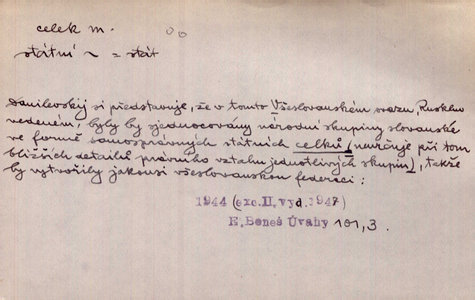 celek m.
státní ~ = stát
Danilevskij si představuje, že v tomto Všeslovanském svazu, Ruskem
vedeném, byly by sjednocovány národní skupiny slovanské
ve formě samosprávných státních celků (neurčuje při tom
bližších detailů právního vztahu jednotlivých skupin), takže
by vytvořily jakousi všeslovanskou federaci :
1944 (exc. II. vyd. 1947)
E. Beneš Úvahy 101, 3.